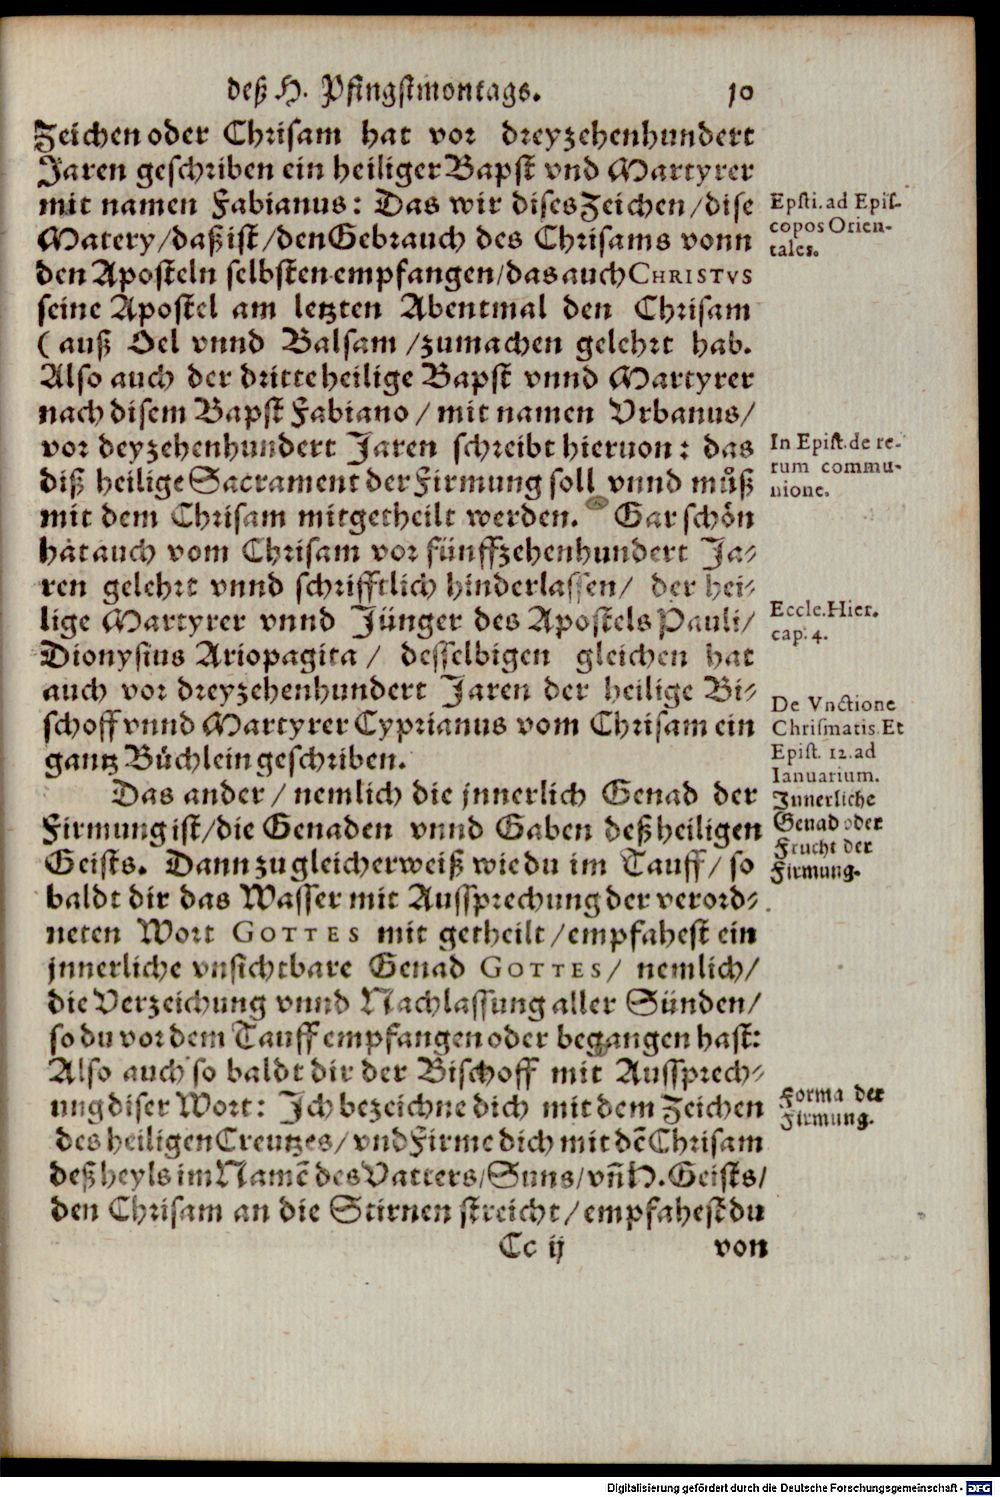 deß H. Pfingstmontags. 10
Zeichen oder Chrisam hat vor dreyzehenhundert
Jaren geschriben ein heiliger Bapst vnd Martyrer
mit namen Fabianus: Das wir dises Zeichen/dise
Matery/daß ist/den Gebrauch des Chrisams vonn
den Aposteln selbsten empfangen/das auch CHRISTVS
seine Apostel am letzten Abentmal den Chrisam
(auß Oel vnnd Balsam/zumachen gelehrt hab.
Also auch der dritte heilige Bapst vnnd Martyrer
nach disem Bapst Fabiano/ mit namen Vrbanus/
vor deyzehenhundert Jaren schreibt hieruon: das
diß heilige Sacrament der Firmung soll vnnd muͦß
mit dem Chrisam mitgetheilt werden. Gar schön
hat auch vom Chrisam vor fünffzehenhundert Ja-
ren gelehrt vnnd schrifftlich hinderlassen/ der hei-
lige Martyrer vnnd Jünger des Apostels Pauli/
Dionysius Ariopagita/ desselbigen gleichen hat
auch vor dreyzehenhundert Jaren der heilige Bi-
schoff vnnd Martyrer Cyprianus vom Chrisam ein
gantz Büchlein geschriben.
Das ander/ nemlich die jnnerlich Genad der
Firmung ist/die Genaden vnnd Gaben deß heiligen
Geists. Dann zu gleicher weiß wie du im Tauff/ so
baldt dir das Wasser mit Aussprechung der verord-
neten Wort GOTTES mit getheilt/empfahest ein
jnnerliche vnsichtbare Genad GOTTES/ nemlich/
die Verzeichung vnnd Nachlassung aller Sünden/
so du vor dem Tauff empfangen oder begangen hast:
Also auch so baldt dir der Bischoff mit Aussprech-
ung diser Wort: Ich bezeichne dich mit dem Zeichen
des heiligen Creutzes/ vnd Firme dich mit dẽ Chrisam
deß heyls im Namẽ des Vatters/Suns/vñ H. Geists/
den Chrisam an die Stirnen streicht/empfahest du
Cc ij von
Epsti. ad Epis-
copos Orien-
tales.
In Epist. de re-
rum commu-
nione.
Eccle. Hier.
cap. 4.
De Vnctione
Chrismatis Et
Epist. 12. ad
Ianuarium.
Innerliche
Genad oder
Frucht der
Firmung.
Forma der
Firmung.
Digitalisierung gefördert durch die Deutsche Forschungsgemeinschaft - DFG